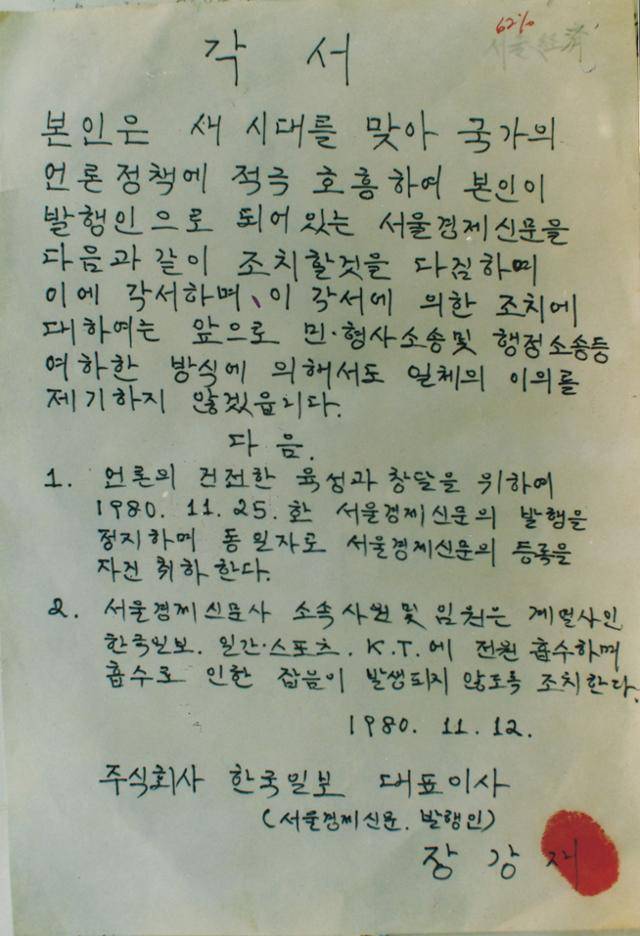 62%
서울経済
각 서
본인은 새 시대를 맞아 국가의
언론정책에 적극 호흥하여 본인이
발행인으로 되어있는 서울경제신문을
다음과 같이 조치할것을 다짐하며
이에 각서하며, 이 각서에 의한 조치에
대하여는 앞으로 민·형사소송및 행정소송등
여하한 방식에 의해서도 일체의 이의를
제기하지 않겠읍니다.
다음.
1. 언론의 건전한 육성과 창달을 위하여
1980. 11. 25. 화 서울경제신문의 발행을
정지하며 동 일자로 서울경제신문의 등록을
자진 취하한다.
2. 서울경제신문사 소속사원및 임원은 계열사인
한국일보. 일간·스포츠. K.T.에 전원 흡수하며
흡수로 인한 잡음이 발생되지 않도록 조치한다.
1980. 11. 12.
주식회사 한국일보 대표이사
(서울경제신문. 발행인)
장 강 재